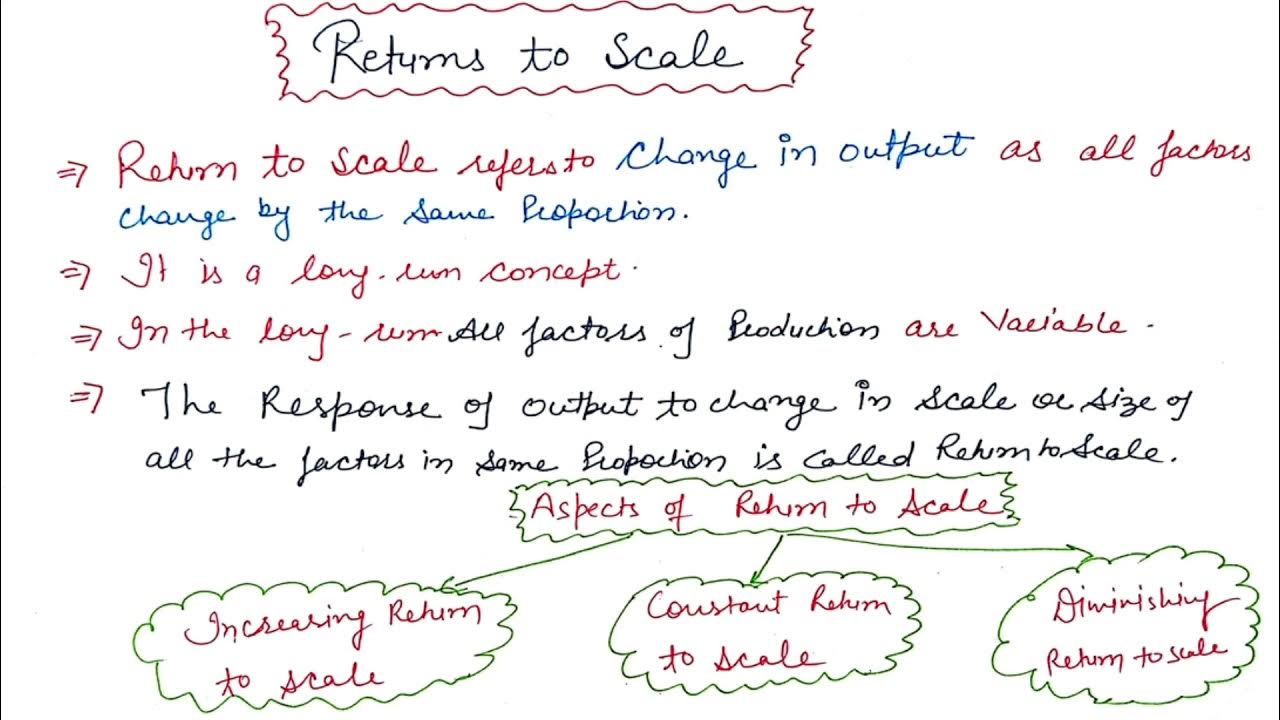 Returns to Scale
⇒ Return to Scale refers to Change in output as all factors
change by the same Proportion.
⇒ It is a long-run concept.
⇒ In the long-run All factors of Production are Variable.
⇒ The Response of output to change in Scale or size of
all the factors in same Proportion is called Return to Scale.
Aspects of Return to Scale
Increasing Return
to scale
Constant Return
to scale
Diminishing
Return to scale